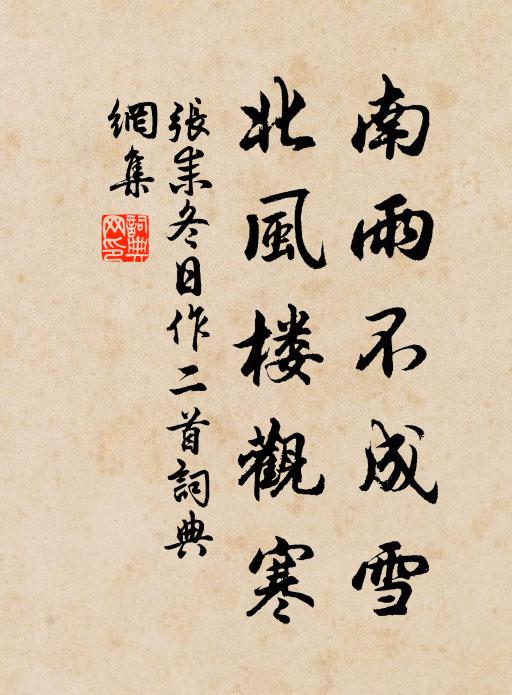 南雨不成雪
北風楼觀寒
張耒冬日作二首詞典
網集
詞典
网印